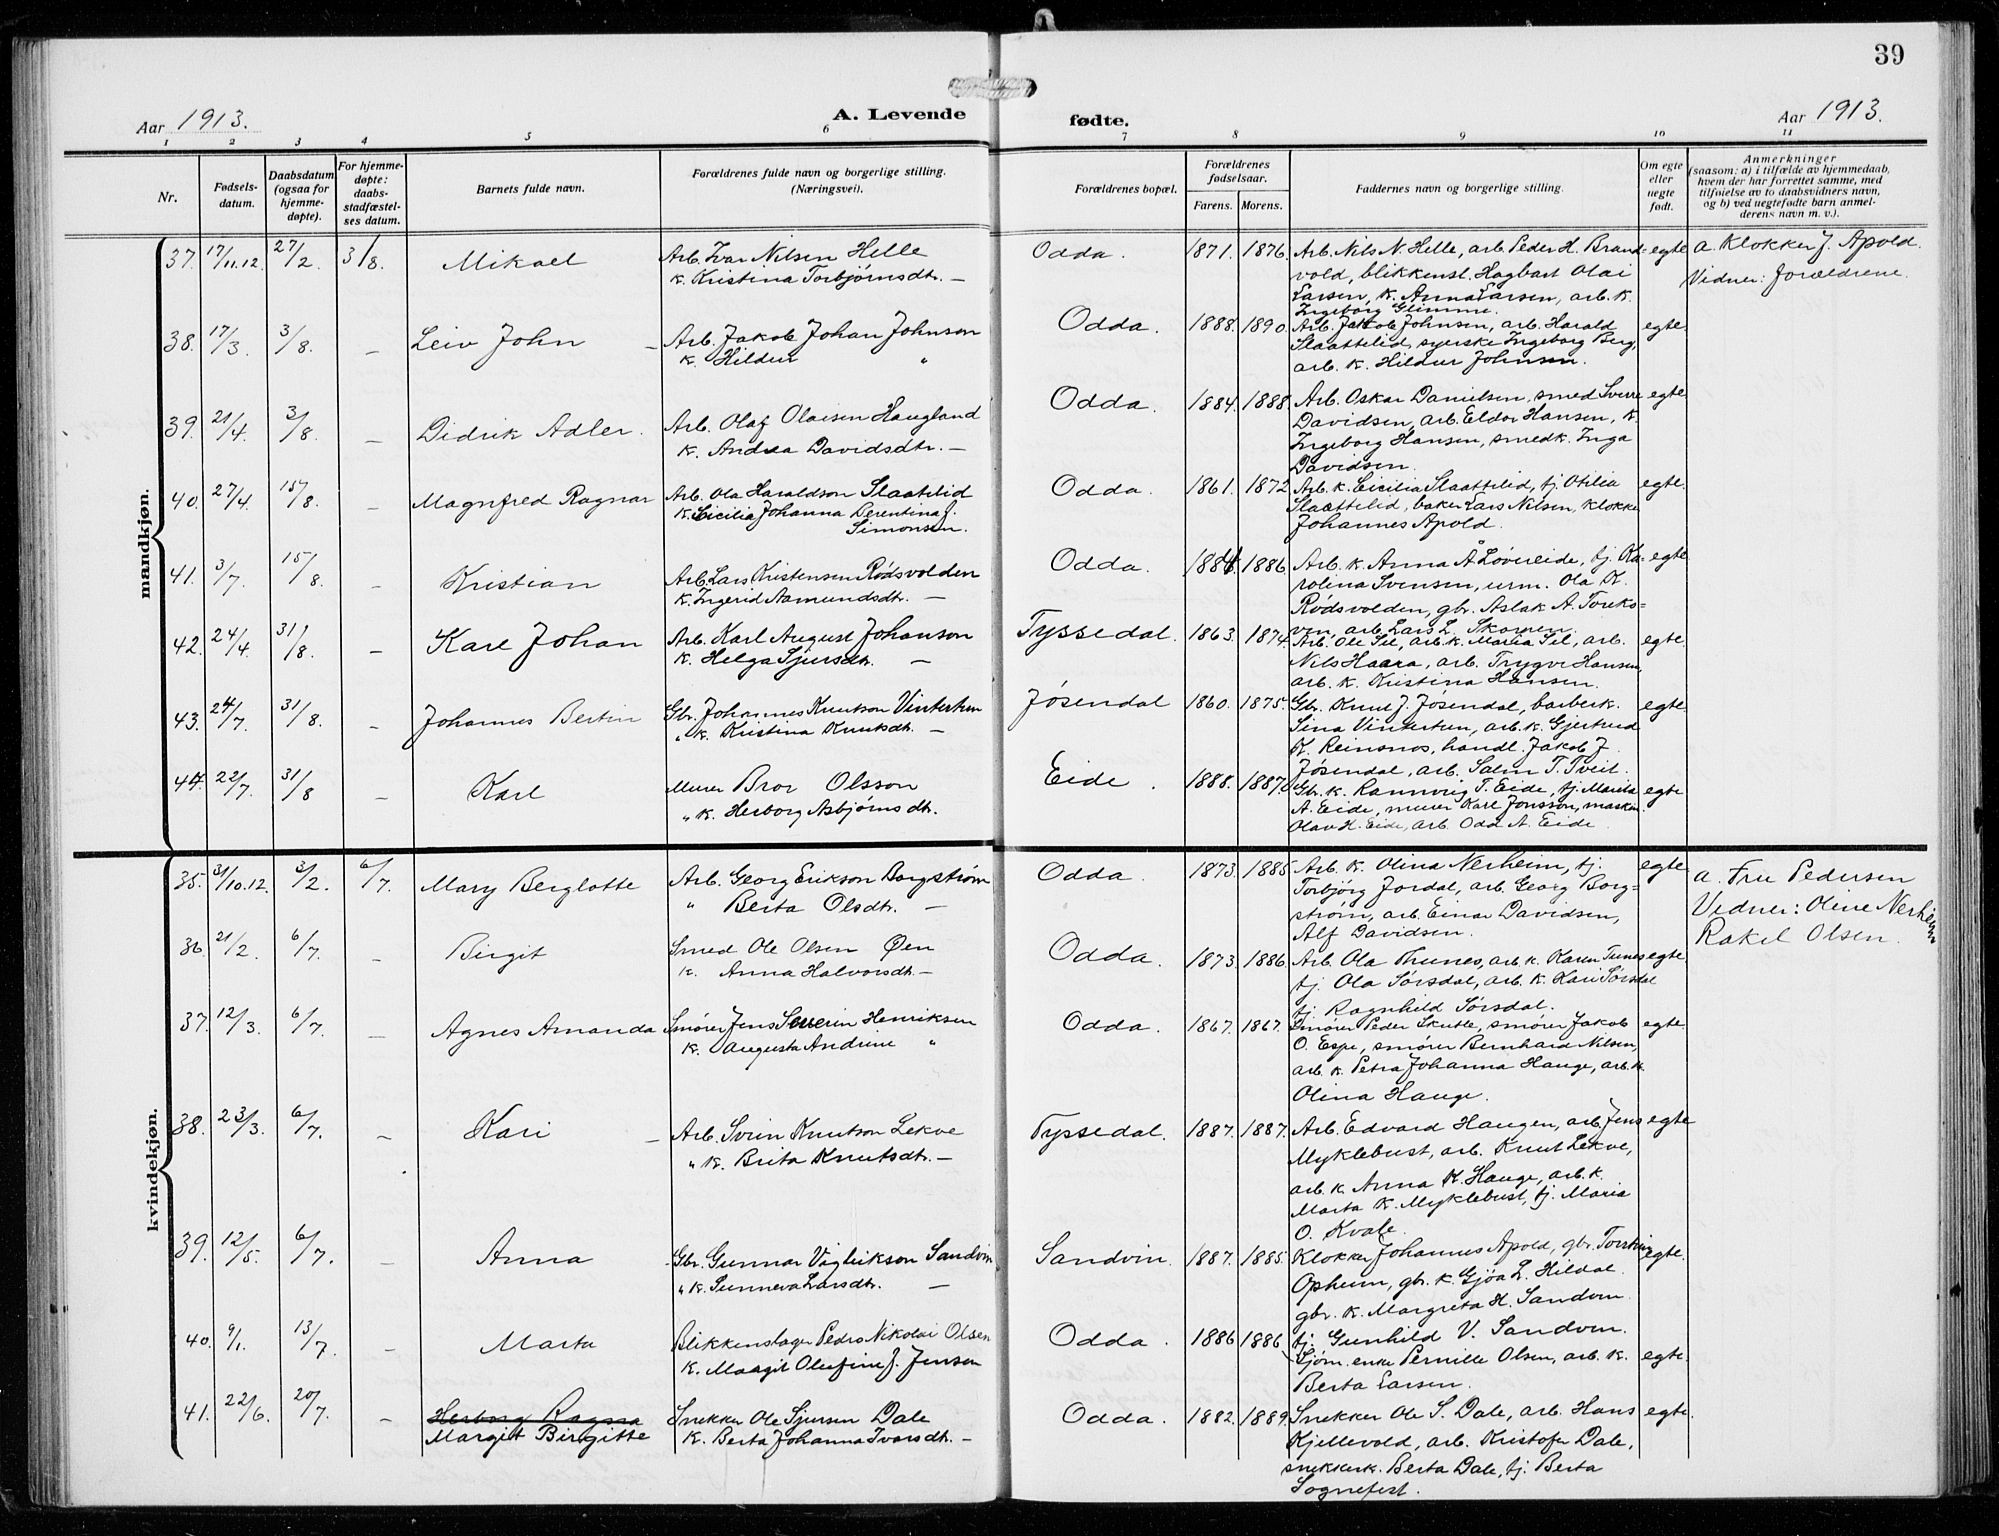 39
Aar 1913. A. Levende fødte. Aar 1913.
1 2 3 4 5 6 7 8 9 10 11
Nr.
Fødsels-
datum.
Daabsdatum
(ogsaa for
hjemme-
døpte).
For hjemme-
døpte:
daabs-
stadfæstel-
ses datum.
Barnets fulde navn.
Forældrenes fulde navn og borgerlige stilling.
(Næringsvei).
Forældrenes bopæl.
Forældrenes
fødselsaar.
Farens. Morens.
Faddernes navn og borgerlige stilling.
Om egte
eller
uegte
født.
Anmerkninger
(saasom: a) i tilfælde av hjemmedaab,
hvem der har forrettet samme, med
tilføielse av to daabsvidners navn,
og b) ved uegtefødte barn anmel-
derens navn m. v.).
mandkjøn.
37. 17/11.12. 27/2. 3/8. Mikael
Arb. Ivar Nilsen Helle
k. Kristina Torbjørnsdtr. —
Odda. 1871. 1876.
Arb. Nils N. Helle, arb. Peder H. Brand-
vold, blikkensl. Hagbart Olai
Larsen, k. Anna Larsen, arb. k.
Ingeborg Glimme.
egte
a. Klokker J. Apold.
Vidner: Forældrene.
38. 17/3. 3/8. — Leiv John —
Arb. Jakob Johan Johnson
k. Hildur "
Odda. 1888. 1890.
Arb. Jakob Johnsen, arb. Harald
Slaattelid, syerske Ingeborg Berg,
arb. k. Hildur Johnsen.
egte.
39. 21/4. 3/8. — Didrik Adler.
Arb. Olaf Olaisen Haugland
k. Andrea Davidsdtr. —
Odda. 1884. 1888.
Arb. Oskar Danielsen, smed Sverre
Davidsen, arb. Eldor Hansen, k.
Ingeborg Hansen, smedk. Inga
Davidsen.
egte.
40. 27/4. 15/8. — Magnfred Ragnar
Arb. Ola Haraldson Slaatelid
k. Cicilia Johanna Berentina f.
Simonsen.
Odda. 1861. 1872
Arb. k. Cicilia Slaattelid, tj. Otilia
Slaattelid, baker Lars Nilsen, klokker
Johannes Apold.
egte.
41. 3/7. 15/8. — Kristian
Arb. Lars Kristensen Rødsvolden
k. Ingerid Aamundsdtr. —
Odda. 1884. 1886.
Arb. k. Anna Å. Løvereide, tj. Ka-
rolina Svensen, urm. Ola K.
Rødsvolden, gbr. Aslak A. Toreks-
ven, arb. Lars L. Skomen.
egte.
42. 24/4. 31/8. — Karl Johan
Arb. Karl August Johanson
k. Helga Sjursdtr. —
Tyssedal. 1863. 1874.
Arb. Ole Sel, arb. k. Maria Sel, arb.
Nils Haara, arb. Trygve Hansen,
arb. k. Kristina Hansen.
egte.
43. 24/7. 31/8. — Johannes Bertin
Gbr. Johannes Knutson Vintertun
" k. Kristina Knutsdtr. —
Jøsendal 1860. 1875.
Gbr. Knut J. Jøsendal, barberk.
Sina Vintertun, arb. k. Gjertrud
K. Reinsnos, handl. Jakob J.
Jøsendal, arb. Salm. T. Tveit.
egte.
44. 22/7. 31/8 — Karl
Murer Bror Olsson
" k. Herborg Asbjørnsdtr.
Eide. 1888. 1887.
Gbr. k. Rannveig T. Eide, tj. Marita
A. Eide, murer Karl Jonsson, maskin.
Olav H. Eide, arb. Odd A. Eide.
egte
kvindekjøn.
35. 31/10.12. 3/2. 6/7. Mary Berglotte
Arb. Georg Erikson Borgstrøm
" Berta Olsdtr. —
Odda. 1873. 1885.
Arb. k. Olina Nerheim, tj.
Torbjørg Jordal, arb. Georg Borg-
strøm, arb. Einar Davidsen,
Alf Davidsen.
egte.
a. Fru Pedersen
Vidner: Oline Nerheim
Rakel Olsen.
36. 21/2. 6/7. — Birgit
Smed Ole Olsen Øen
k. Anna Halvorsdtr. —
Odda. 1873. 1886.
Arb. Ola Thunes, arb. k. Karen Tunes
tj. Ola Sørsdal, arb. k. Kari Sørsdal
tj. Ragnhild Sørsdal.
egte.
37. 12/3. 6/7. — Agnes Amanda
Smører Jens Severin Henriksen
k. Augusta Andrine "
Odda. 1867. 1867.
Smører Peder Skutle, smører Jakob
O. Espe, smører Bernhard Nilsen,
arb. k. Petra Johanna Hauge, arb. k.
Olina Hauge.
egte.
38. 23/3. 6/7. — Kari —
Arb. Svein Knutson Lekve
" k. Brita Knutsdtr. —
Tyssedal. 1887. 1887.
Arb. Edvard Haugen, arb. Jens
Myklebust, arb. Knut Lekve,
arb. k. Anna K. Hauge, arb. k.
Marta K. Myklebust, tj. Maria
O. Kvale.
egte
39. 12/5. 6/7. — Anna
Gbr. Gunnar Viglikson Sandvin
" k. Sunneva Larsdtr. —
Sandvin. 1887. 1885.
Klokker Johannes Apold, gbr. Torstein
Opheim, gbr. k. Gjøa L. Hildal.
gbr. k. Margreta H. Sandven.
tj. Gunhild V. Sandven.
egte.
40. 9/1. 13/7. — Marta
Blikkenslager Pedro Nikolai Olsen
k. Maagit Olufine f. Jensen
Odda. 1886 1886
Sjøm. enke Pernille Olsen, arb. k.
Berta Larsen.
egte.
41. 22/6. 20/7. — Herborg Ragna
Margit Birgitte
Snekker Ole Sjursen Dale
k. Berta Johanna Ivarsdtr. —
Odda. 1882. 1889.
Snekker Ole S. Dale, arb. Hans
Kjellevold, arb. Kristofer Dale,
snekkerk. Berta Dale, tj. Berta
Sognefest.
egte.